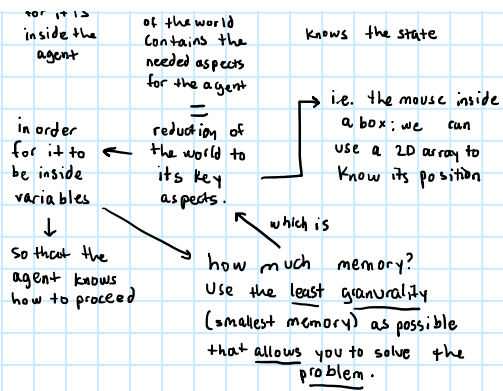 for it is
inside the
agent
of the world
contains the
needed aspects
for the agent
knows the state
=
reduction of
the world to
its key
aspects.
i.e. the mouse inside
a box: we can
use a 2D array to
know its position
in order
for it to
be inside
variables
so that the
agent knows
how to proceed
which is
how much memory?
Use the least granurality
(smallest memory) as possible
that allows you to solve the
problem.